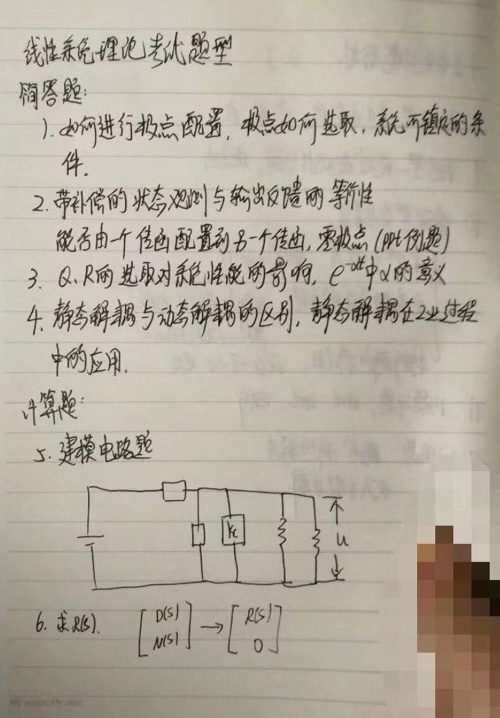 线性系统理论考试题型
简答题:
1. 如何进行极点配置, 极点如何选取, 系统可镇定的条
件.
2. 带补偿的状态观测与输出反馈的等价性
能否由一个传函配置到另一个传函, 零极点(ppt例题)
3. Q、R的选取对系统性能的影响, e^-αt中α的意义
4. 静态解耦与动态解耦的区别, 静态解耦在工业过程
中的应用.
计算题:
5. 建模电路题
u
6. 求R(s). [D(s) N(s)] → [R(s) 0]